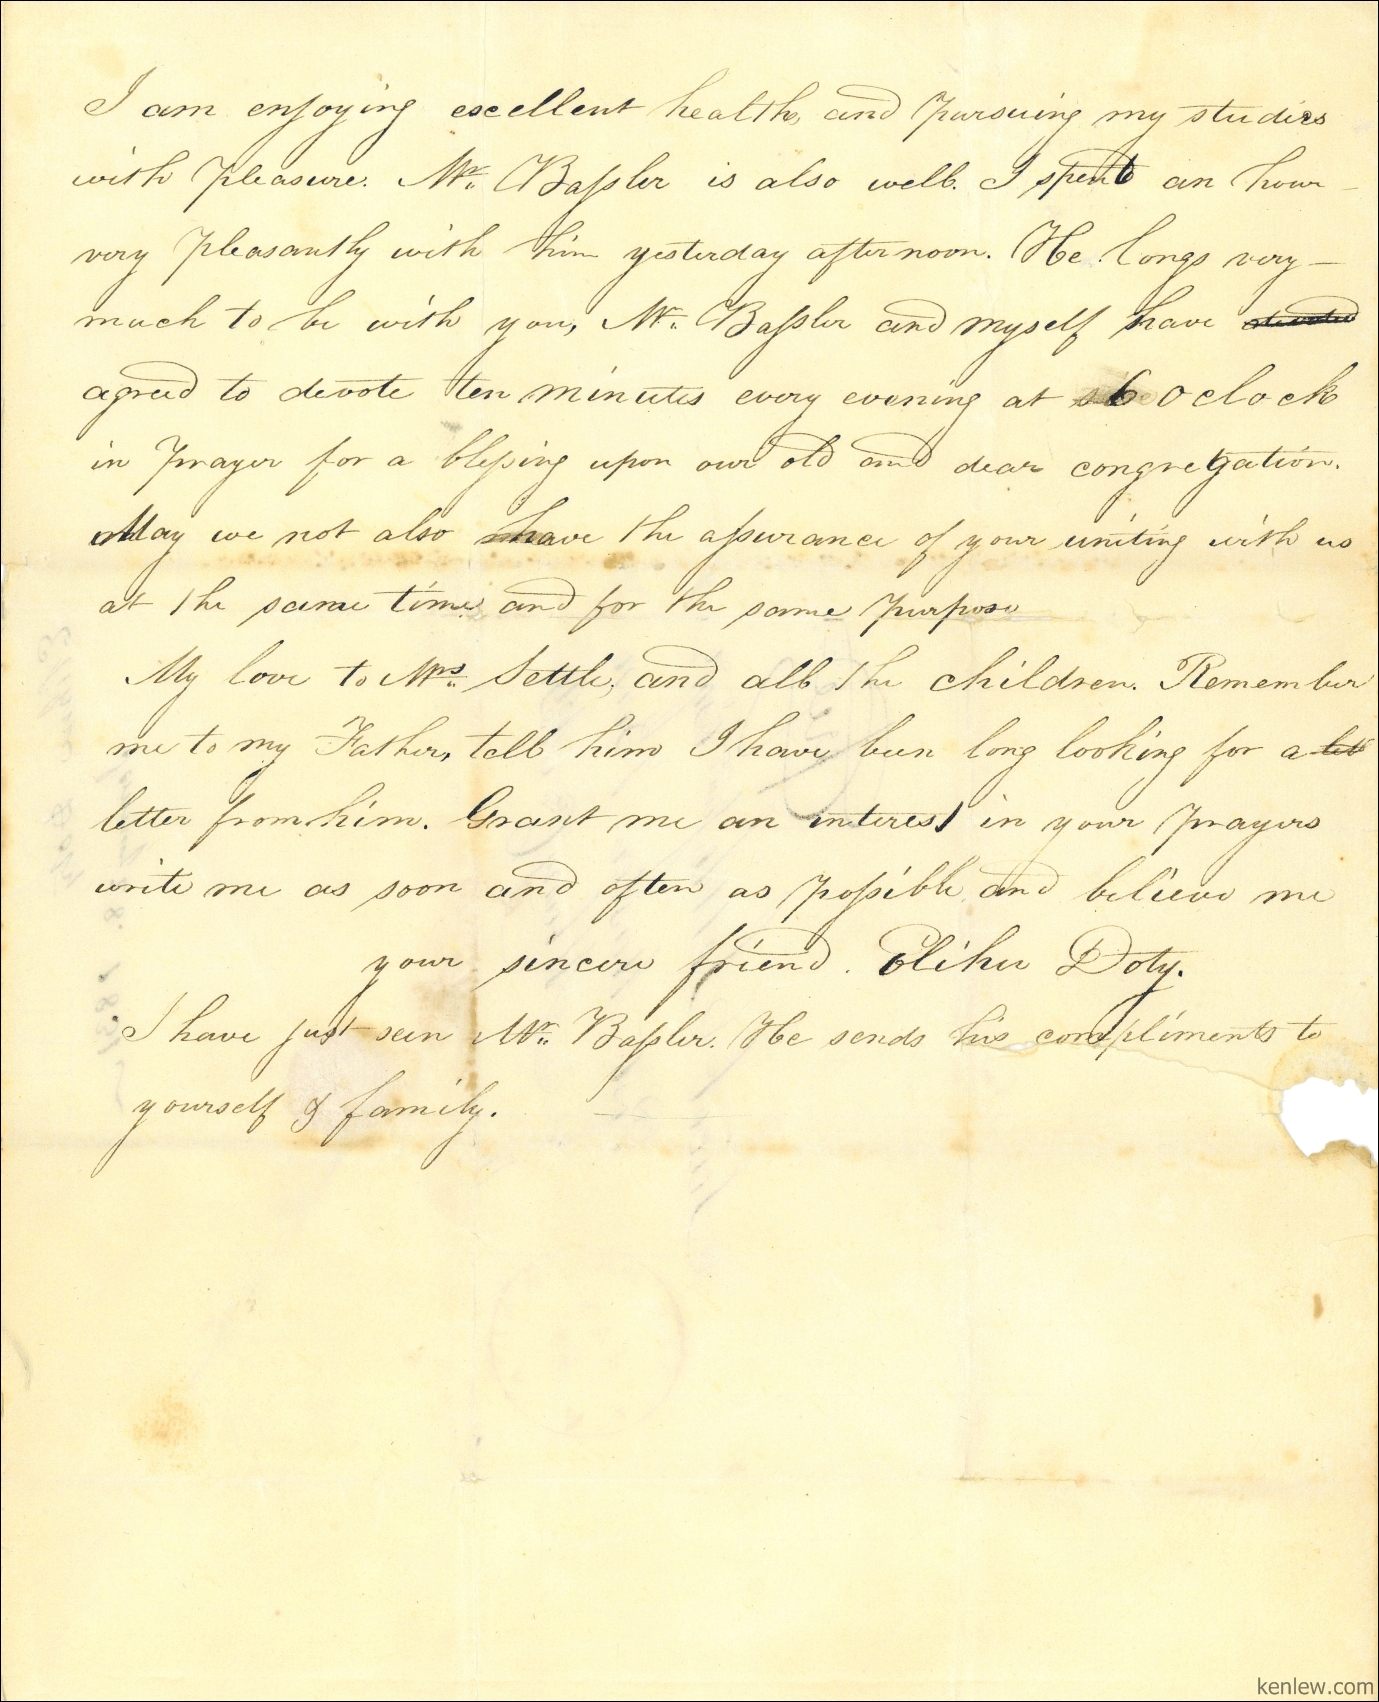 I am enjoying excellent health, and pursuing my studies
with pleasure. Mr. Baſsler is also well. I spent an hour
very pleasantly with him yesterday afternoon. He longs very
much to be with you, Mr. Baſsler and myself have devoted
agreed to devote ten minutes every evening at 6 oclock
in prayer for a bleſsing upon our old and dear congregation.
May we not also have the aſsurance of your uniting with us
at the same time and for the same purpose
My love to Mrs. Settle, and all the children. Remember
me to my Father, tell him I have been long looking for a let
letter from him. Grant me an interest in your prayers
write me as soon and often as poſsible and believe me
your sincere friend. Elihu Doty.
I have just seen Mr. Baſsler. He sends his compliments to
yourself & family.
kenlew.com